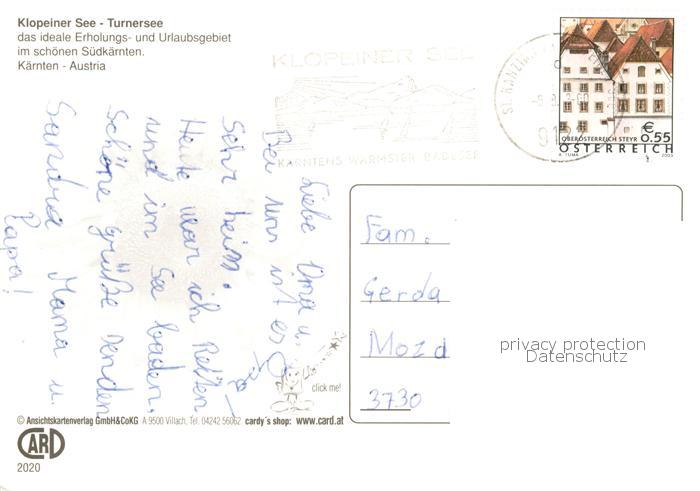 Klopeiner See - Turnersee
das ideale Erholungs- und Urlaubsgebiet
im schönen Südkärnten.
Kärnten - Austria
KLOPEINER SEE
KÄRNTENS WÄRMSTER BADESEE
ST. KANZIAN
OBERÖSTERREICH STEYR € 0.55
A. TUMA 2003
ÖSTERREICH
Liebe Oma u.
Bei uns ist es
Sehr heiss.
Heute war ich Reiten
und im See baden.
Schöne Grüße senden
Sandra Mama u.
Papa!
Fam.
Gerda
Mozd
3730
privacy protection
Datenschutz
click me!
© Ansichtskartenverlag GmbH&CoKG A 9500 Villach, Tel. 04242 56062 cardy´s shop: www.card.at
CARD
2020